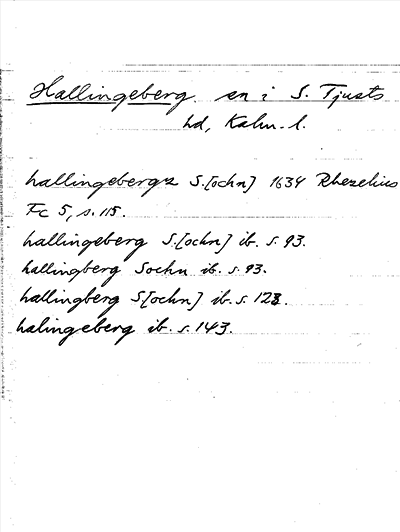 Hallingeberg sn i S. Tjusts
hd, Kalm. l.
hallingebergz S.[ochn] 1634 Rhezelius
Fc 5, s. 115.
hallingeberg S.[ochn] ib. s. 93.
hallingberg Sochn ib. s. 93.
hallingberg S[ochn] ib. s. 123.
halingeberg ib. s. 143.